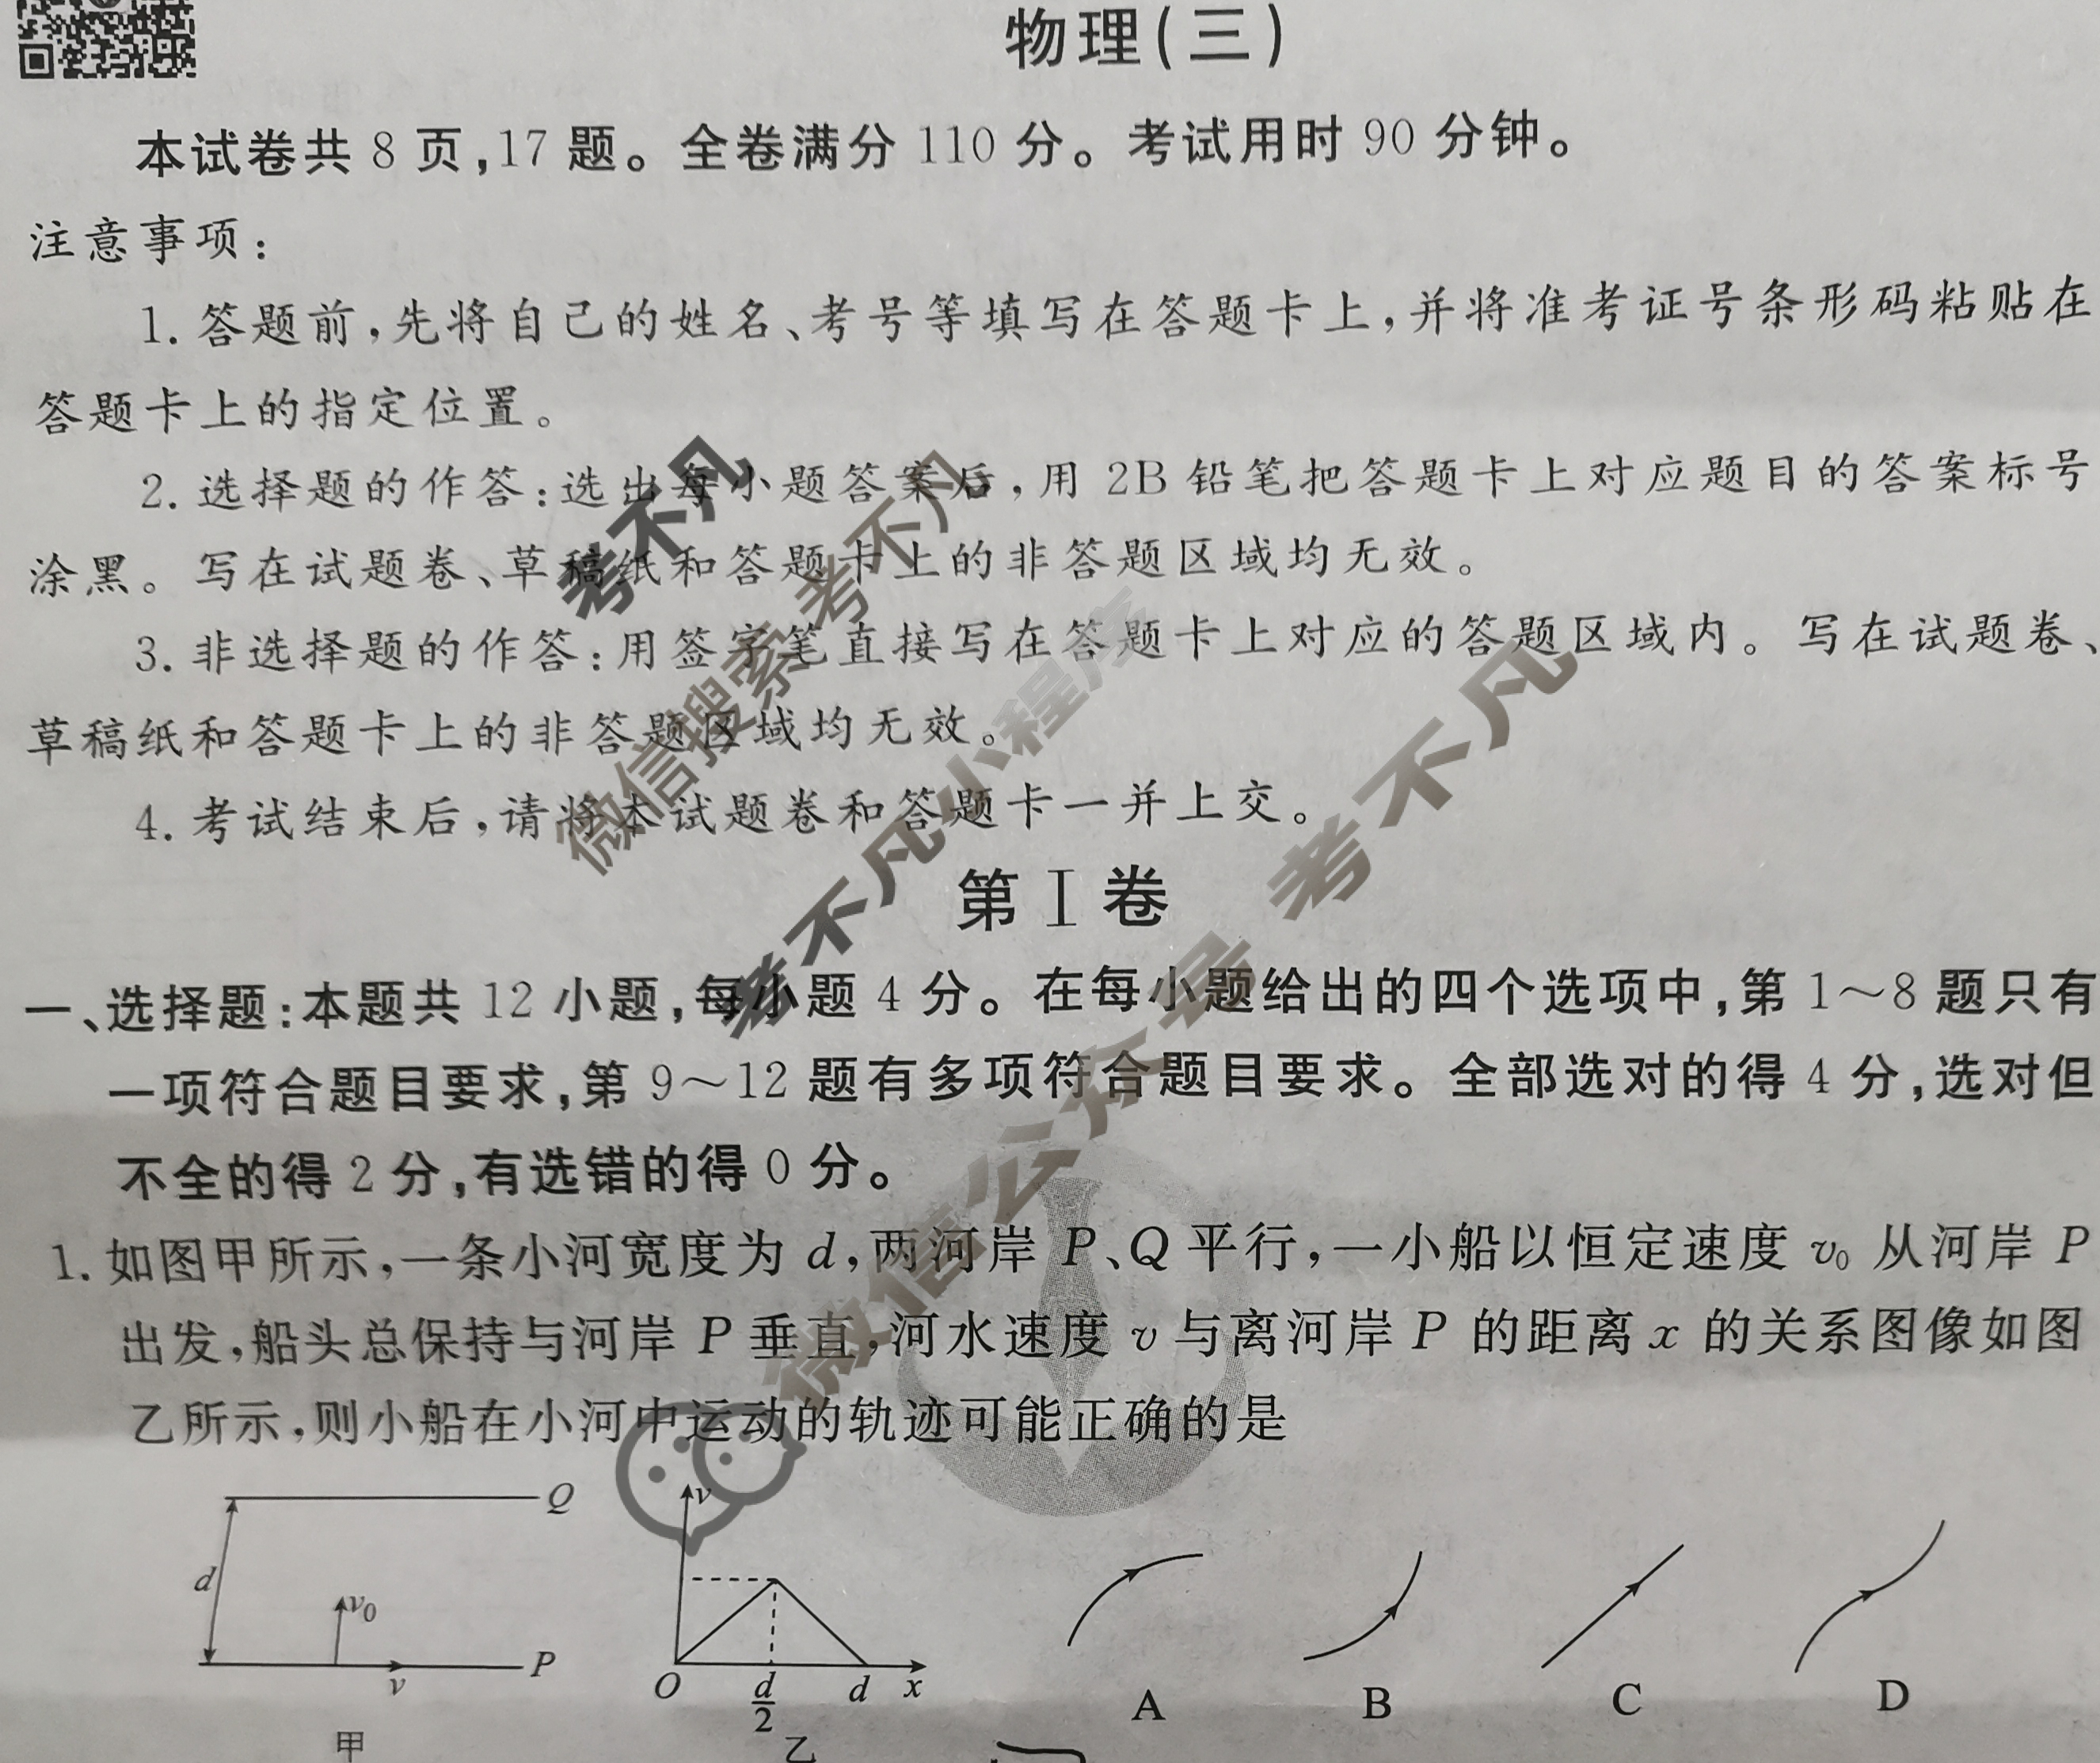 物理(三)
本试卷共 8 页,17 题。全卷满分 110 分。考试用时 90 分钟。
注意事项:
1. 答题前,先将自己的姓名、考号等填写在答题卡上,并将准考证号条形码粘贴在
答题卡上的指定位置。
2. 选择题的作答:选出每小题答案后,用 2B 铅笔把答题卡上对应题目的答案标号
涂黑。写在试题卷、草稿纸和答题卡上的非答题区域均无效。
3. 非选择题的作答:用签字笔直接写在答题卡上对应的答题区域内。写在试题卷、
草稿纸和答题卡上的非答题区域均无效。
4. 考试结束后,请将本试题卷和答题卡一并上交。
考不凡
微信搜索 考不凡
考不凡小程序
微信公众号 考不凡
第 I 卷
一、选择题:本题共 12 小题,每小题 4 分。在每小题给出的四个选项中,第 1~8 题只有
一项符合题目要求,第 9~12 题有多项符合题目要求。全部选对的得 4 分,选对但
不全的得 2 分,有选错的得 0 分。
1. 如图甲所示,一条小河宽度为 d,两河岸 P、Q 平行,一小船以恒定速度 v₀ 从河岸 P
出发,船头总保持与河岸 P 垂直,河水速度 v 与离河岸 P 的距离 x 的关系图像如图
乙所示,则小船在小河中运动的轨迹可能正确的是
Q
d
v₀
P
v
甲
v
O
d/2
d
x
乙
A
B
C
D